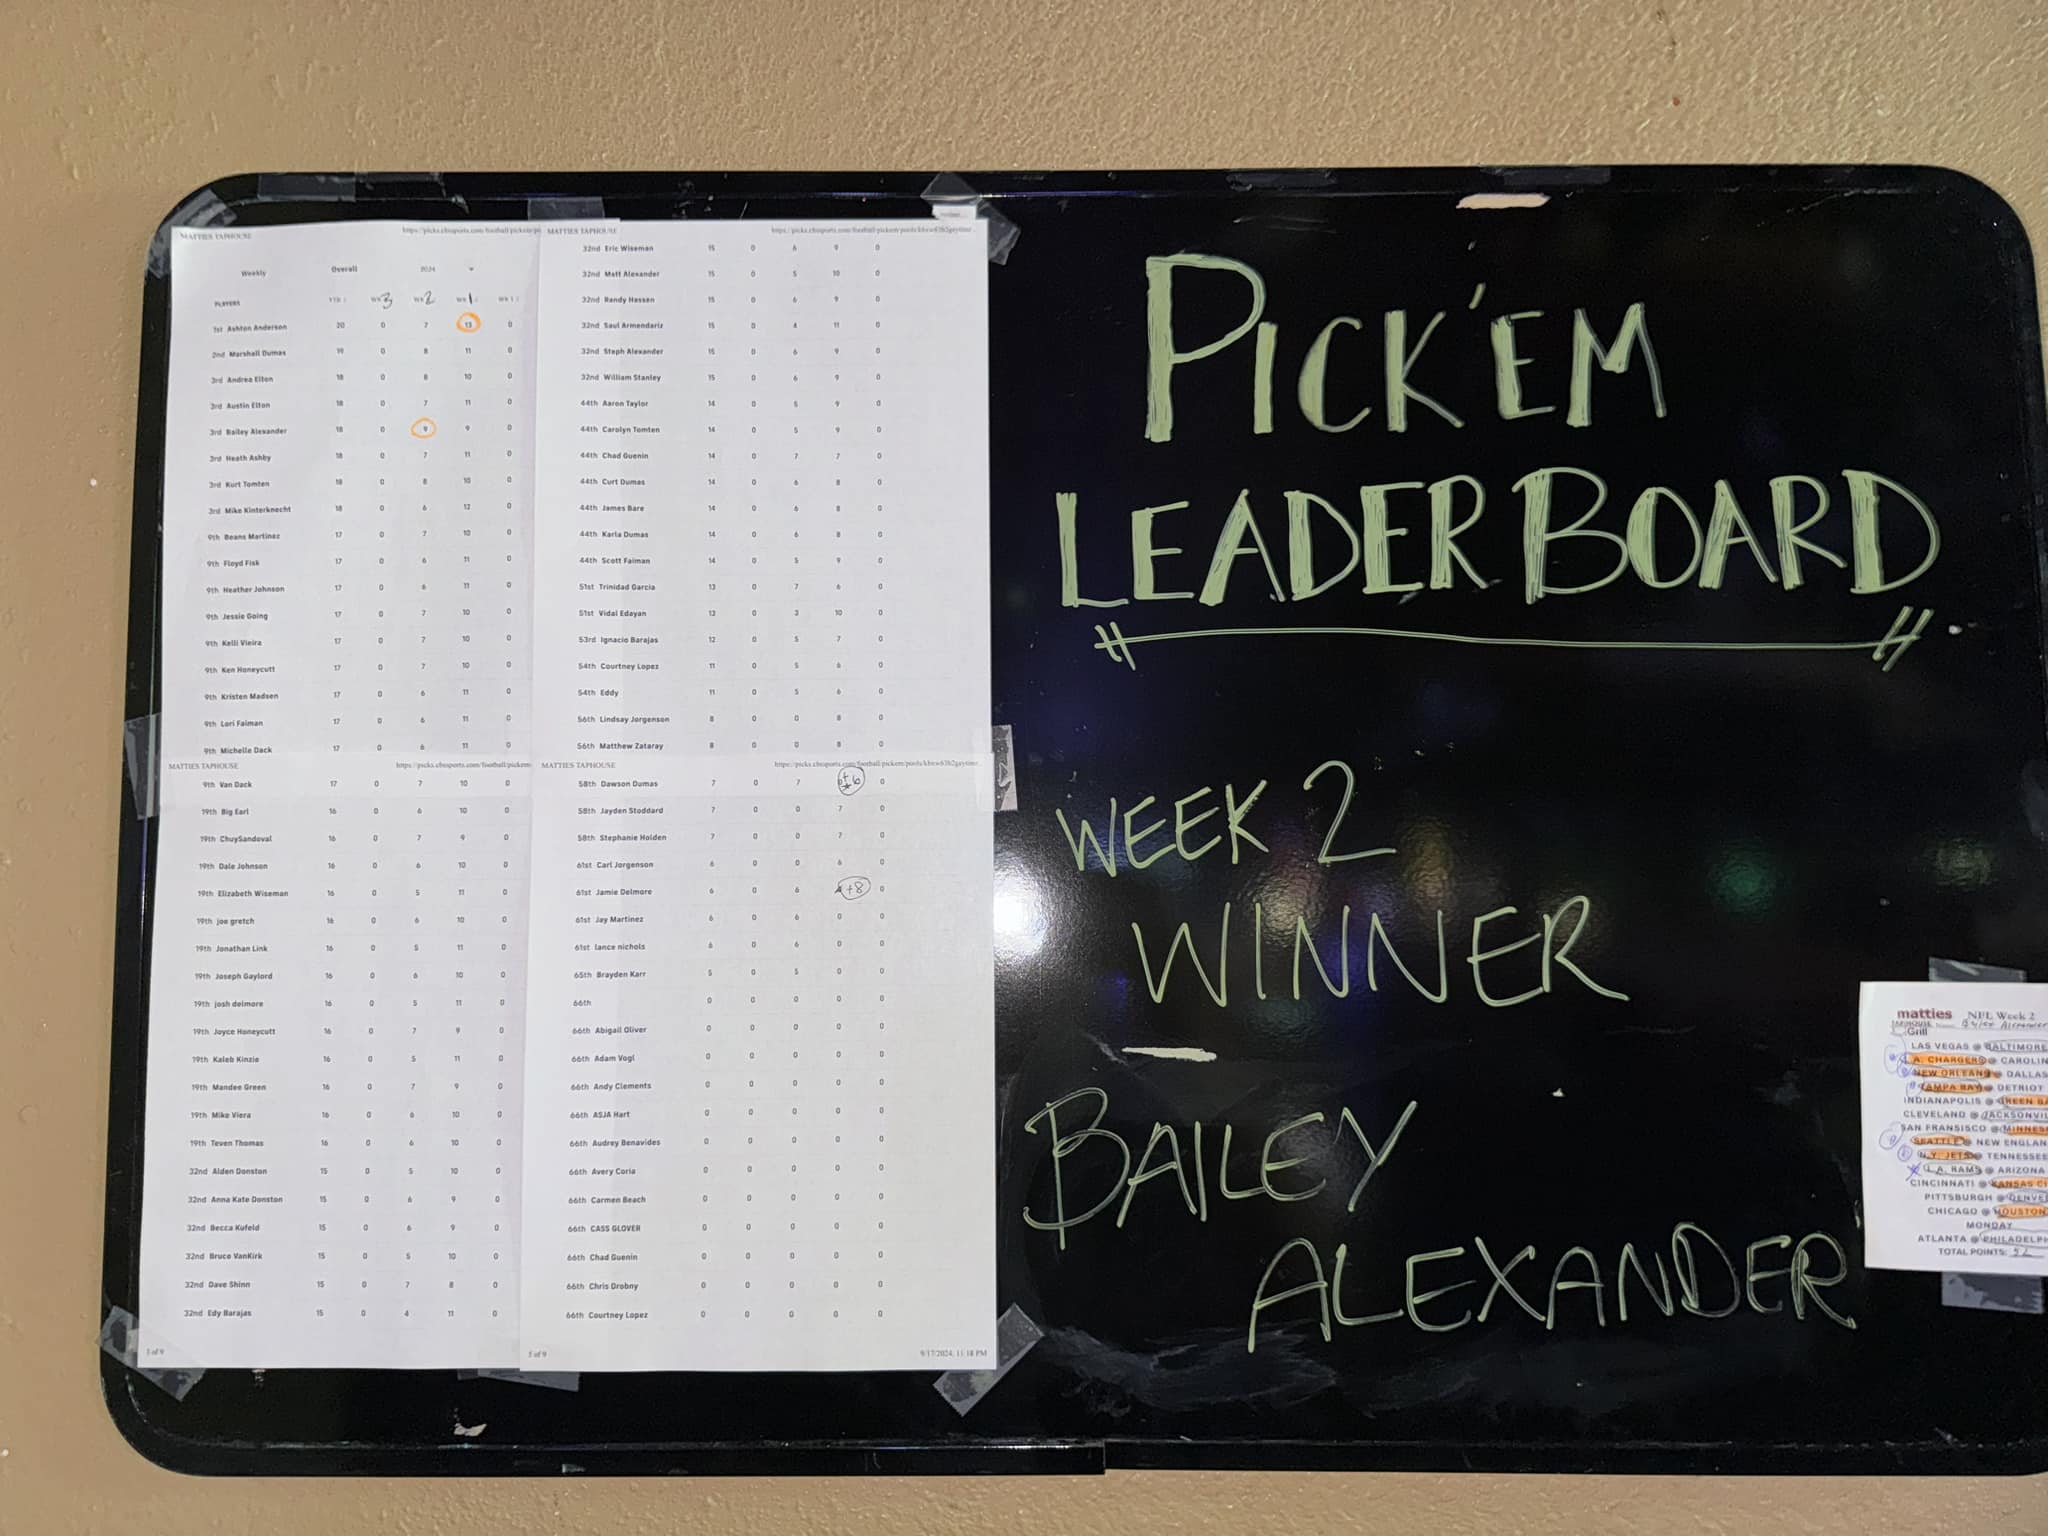 MATTIES TAPHOUSE
Weekly Overall 2024
PLAYERS YTD WK 3 WK 2 WK 1 WK 1
1st Ashton Anderson 20 0 7 13 0
2nd Marshall Dumas 19 0 8 11 0
3rd Andrea Elton 18 0 8 10 0
3rd Austin Elton 18 0 7 11 0
3rd Bailey Alexander 18 0 9 9 0
3rd Heath Ashby 18 0 7 11 0
3rd Kurt Tomten 18 0 8 10 0
3rd Mike Kinterknecht 18 0 6 12 0
9th Beans Martinez 17 0 7 10 0
9th Floyd Fisk 17 0 6 11 0
9th Heather Johnson 17 0 6 11 0
9th Jessie Going 17 0 7 10 0
9th Kelli Vieira 17 0 7 10 0
9th Ken Honeycutt 17 0 7 10 0
9th Kristen Madsen 17 0 6 11 0
9th Lori Faiman 17 0 6 11 0
9th Michelle Dack 17 0 6 11 0
MATTIES TAPHOUSE
9th Van Dack 17 0 7 10 0
19th Big Earl 16 0 6 10 0
19th ChuySandoval 16 0 7 9 0
19th Dale Johnson 16 0 6 10 0
19th Elizabeth Wiseman 16 0 5 11 0
19th joe gretch 16 0 6 10 0
19th Jonathan Link 16 0 5 11 0
19th Joseph Gaylord 16 0 6 10 0
19th josh delmore 16 0 5 11 0
19th Joyce Honeycutt 16 0 7 9 0
19th Kaleb Kinzie 16 0 5 11 0
19th Mandee Green 16 0 7 9 0
19th Mike Viera 16 0 6 10 0
19th Teven Thomas 16 0 6 10 0
32nd Alden Donston 15 0 5 10 0
32nd Anna Kate Donston 15 0 6 9 0
32nd Becca Kufeld 15 0 6 9 0
32nd Bruce VanKirk 15 0 5 10 0
32nd Dave Shinn 15 0 7 8 0
32nd Edy Barajas 15 0 4 11 0
MATTIES TAPHOUSE
32nd Eric Wiseman 15 0 6 9 0
32nd Matt Alexander 15 0 5 10 0
32nd Randy Hassen 15 0 6 9 0
32nd Saul Armendariz 15 0 4 11 0
32nd Steph Alexander 15 0 6 9 0
32nd William Stanley 15 0 6 9 0
44th Aaron Taylor 14 0 5 9 0
44th Carolyn Tomten 14 0 5 9 0
44th Chad Guenin 14 0 7 7 0
44th Curt Dumas 14 0 6 8 0
44th James Bare 14 0 6 8 0
44th Karla Dumas 14 0 6 8 0
44th Scott Faiman 14 0 5 9 0
51st Trinidad Garcia 13 0 7 6 0
51st Vidal Edayan 13 0 3 10 0
53rd Ignacio Barajas 12 0 5 7 0
54th Courtney Lopez 11 0 5 6 0
54th Eddy 11 0 5 6 0
56th Lindsay Jorgenson 8 0 0 8 0
56th Matthew Zataray 8 0 0 8 0
MATTIES TAPHOUSE
58th Dawson Dumas 7 0 7 +6 0
58th Jayden Stoddard 7 0 0 7 0
58th Stephanie Holden 7 0 0 7 0
61st Carl Jorgenson 6 0 0 6 0
61st Jamie Delmore 6 0 6 +8 0
61st Jay Martinez 6 0 6 0 0
61st lance nichols 6 0 6 0 0
65th Brayden Karr 5 0 5 0 0
66th 0 0 0 0 0
66th Abigail Oliver 0 0 0 0 0
66th Adam Vogl 0 0 0 0 0
66th Andy Clements 0 0 0 0 0
66th ASJA Hart 0 0 0 0 0
66th Audrey Benavides 0 0 0 0 0
66th Avery Coria 0 0 0 0 0
66th Carmen Beach 0 0 0 0 0
66th CASS GLOVER 0 0 0 0 0
66th Chad Guenin 0 0 0 0 0
66th Chris Drobny 0 0 0 0 0
66th Courtney Lopez 0 0 0 0 0
5 of 9 9/17/2024, 11:18 PM
PICK'EM
LEADERBOARD
WEEK 2
WINNER
BAILEY
ALEXANDER
matties NFL Week 2
TAPHOUSE
Grill
LAS VEGAS @ BALTIMORE
L.A. CHARGERS @ CAROLIN
NEW ORLEANS @ DALLAS
TAMPA BAY @ DETRIOT
INDIANAPOLIS @ GREEN BA
CLEVELAND @ JACKSONVIL
SAN FRANSISCO @ MINNES
SEATTLE @ NEW ENGLAN
N.Y. JETS @ TENNESSE
L.A. RAMS @ ARIZONA
CINCINNATI @ KANSAS CI
PITTSBURGH @ DENVE
CHICAGO @ HOUSTON
MONDAY
ATLANTA @ PHILADELPH
TOTAL POINTS: 52